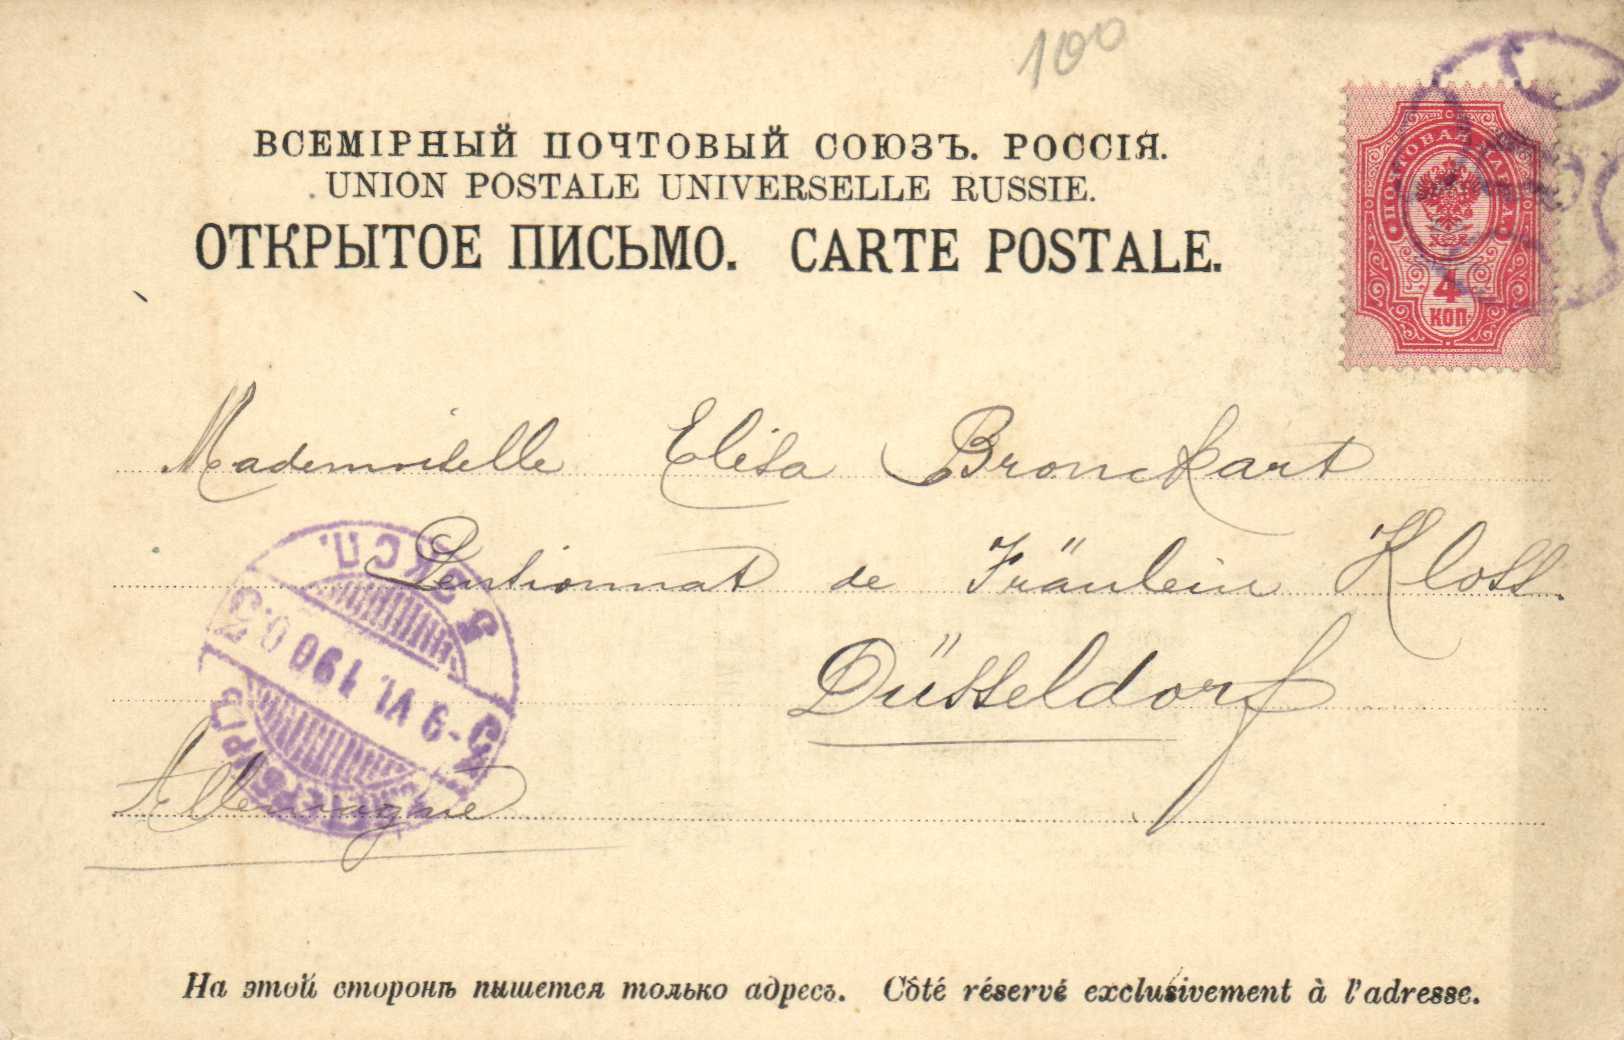 100
ВСЕМІРНЫЙ ПОЧТОВЫЙ СОЮЗЪ. РОССІЯ.
UNION POSTALE UNIVERSELLE RUSSIE.
ОТКРЫТОЕ ПИСЬМО. CARTE POSTALE.
ПОЧТОВАЯ МАРКА
4
КОП.
Mademoiselle Elisa Bronckart
Pensionnat de Fräulein Kloss.
Düsseldorf
Allemagne
5 ЭКСП.
9 VI. 1906
На этой сторонѣ пишется только адресъ. Côté réservé exclusivement à l'adresse.